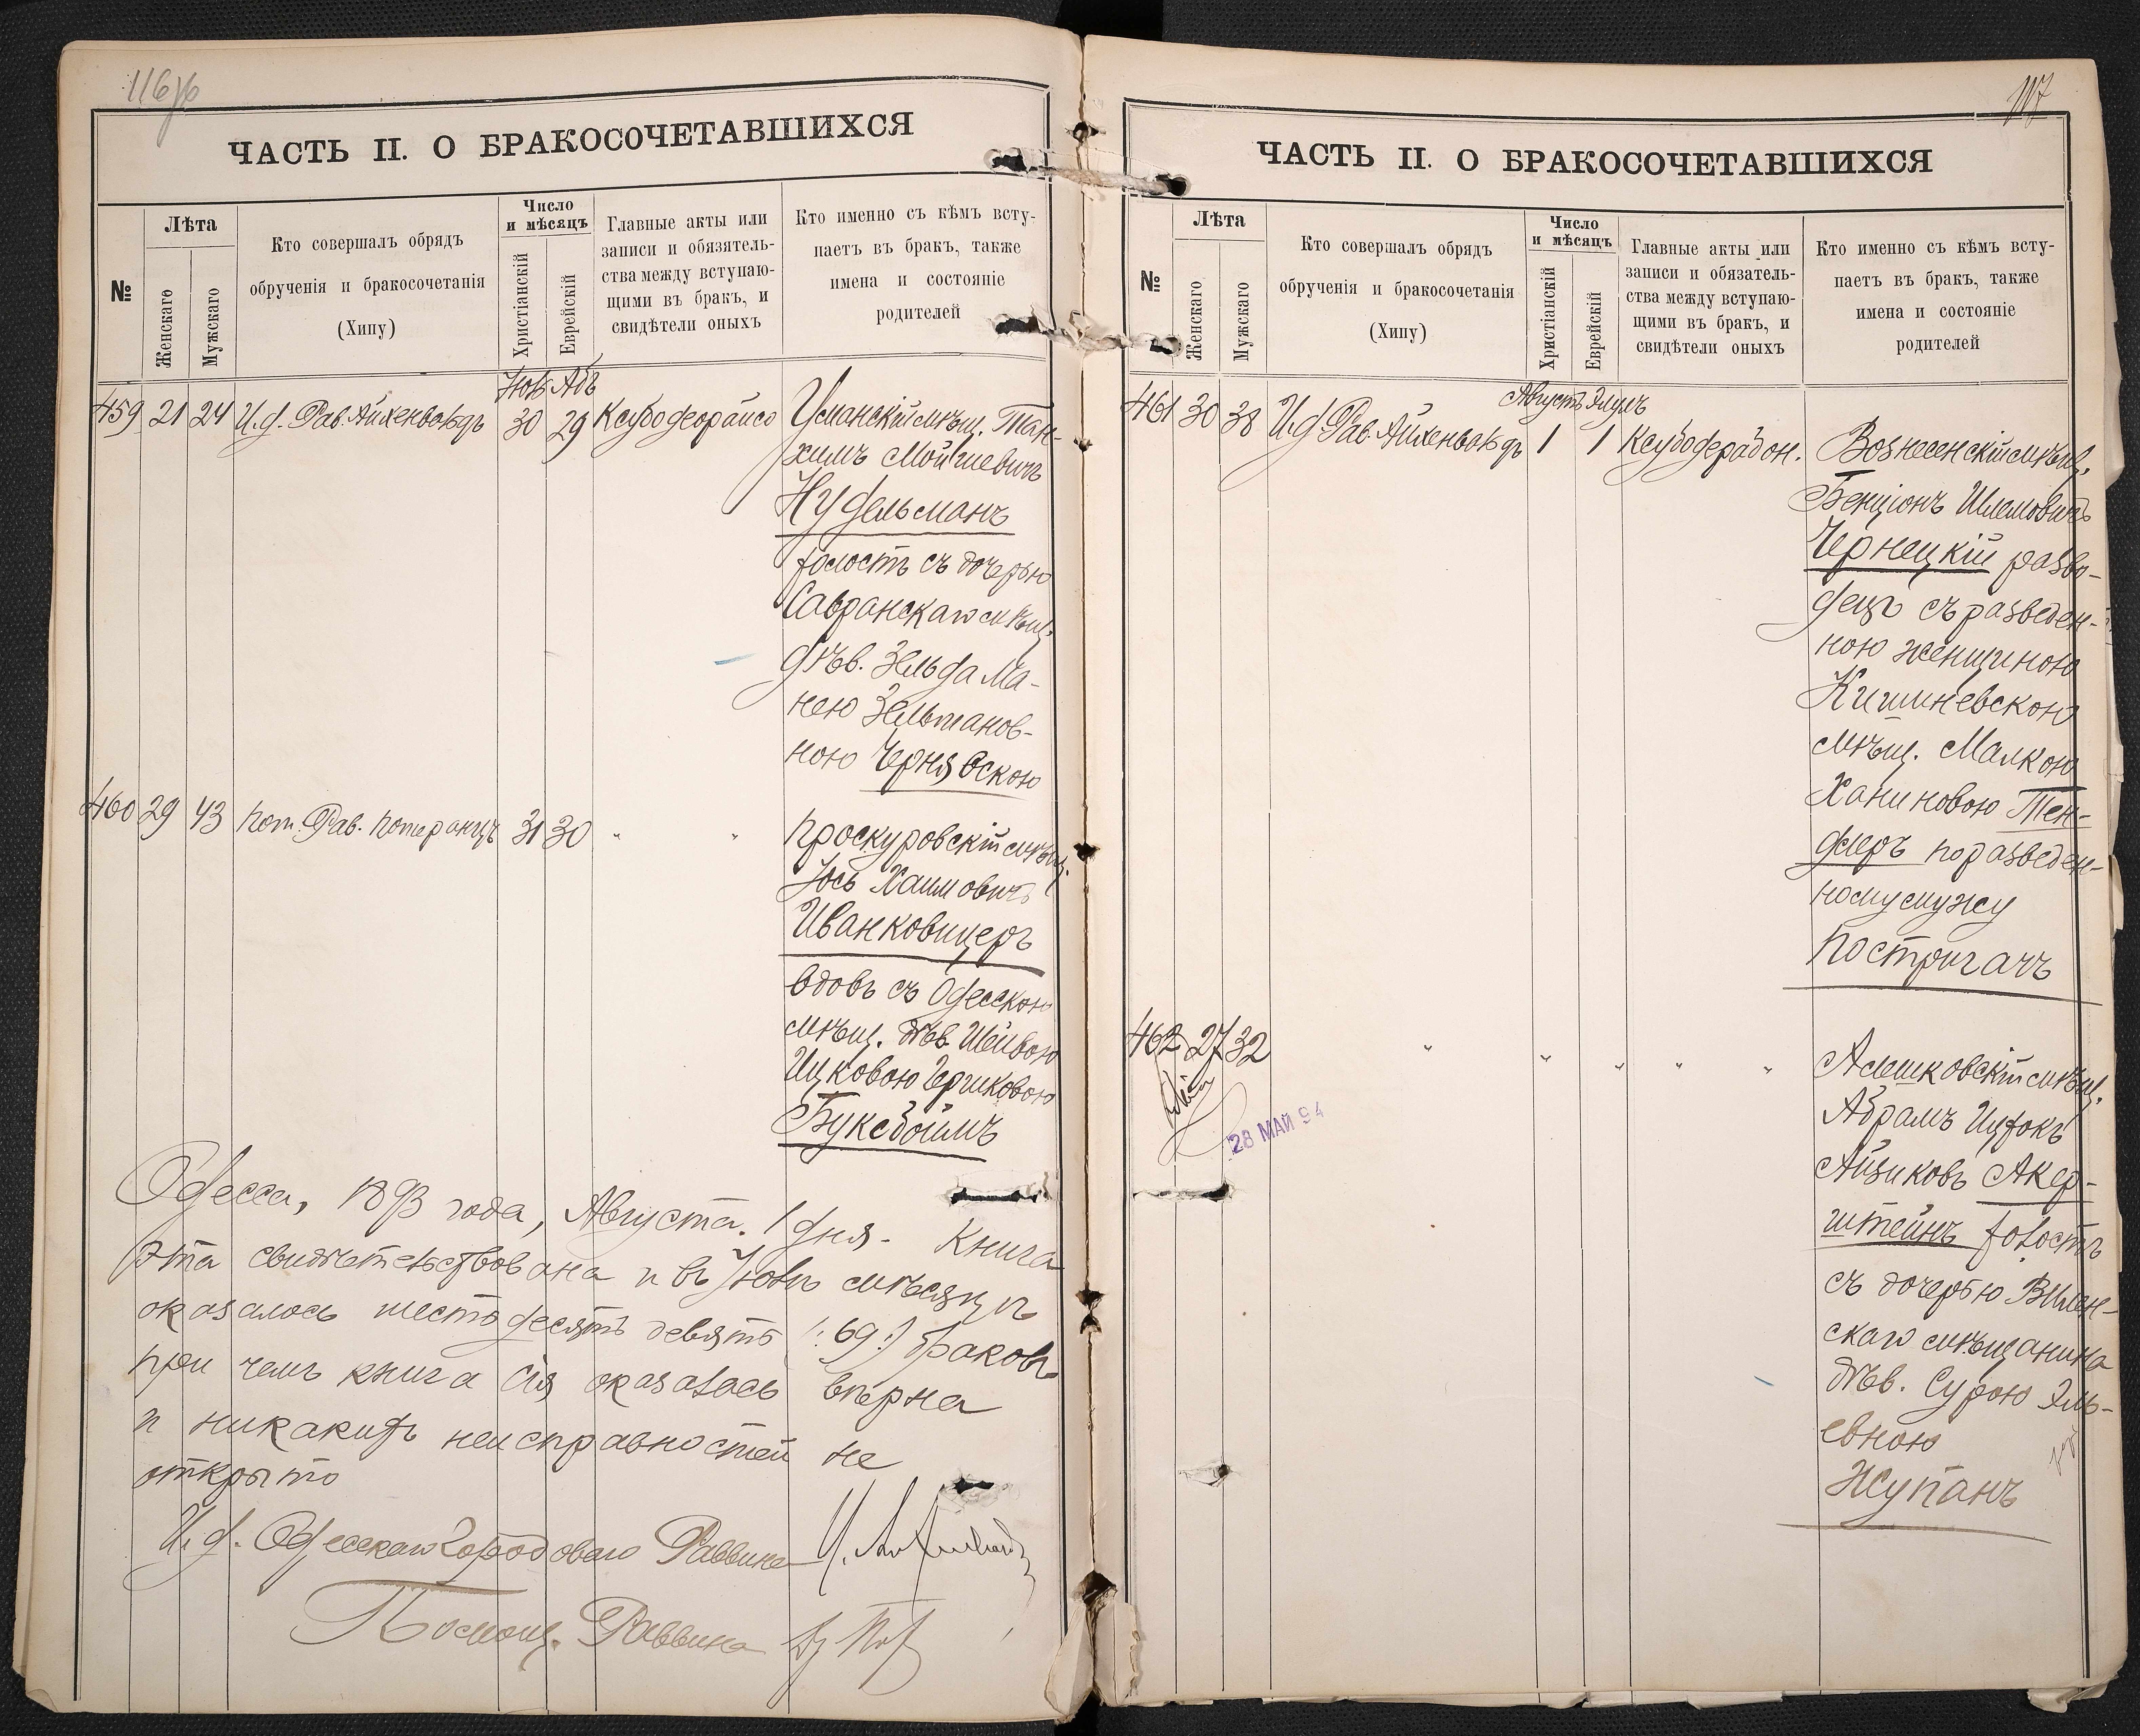 116об
ЧАСТЬ II. О БРАКОСОЧЕТАВШИХСЯ
№
Лѣта
Женскаго
Мужскаго
Кто совершалъ обрядъ
обрученія и бракосочетанія
(Хипу)
Число
и мѣсяцъ
Христіанскій
Еврейскій
Главные акты или
записи и обязатель-
ства между вступаю-
щими въ бракъ, и
свидѣтели оныхъ
Кто именно съ кѣмъ всту-
паетъ въ бракъ, также
имена и состояніе
родителей
Іюль Абъ
459 21 24 И.д. Рав. Айхенвальдъ 30 29 Ксубодеорайсо Уманскій мѣщ. Тан-
химъ Мойшевичъ
Нудельманъ
холостъ съ дочерью
Савранскаго мѣщ.
дѣв. Зельда Ма-
нею Зельманов-
ною Чернявскою
460 29 43 Пом. Рав. Полеранцъ 31 30 " " Проскуровскій мѣщ.
Іось Хаимовичъ
Иванковицеръ
вдовъ съ Одесскою
мѣщ. дѣв. Шейвою
Ицковою Герш­ковою
Буксбоймъ
Одесса, 1893 года, Августа 1 дня. Книга
эта свидѣтельствована и въ Іюлѣ мѣсяцѣ
оказалось шестьдесятъ девять /:69:/ браковъ
при чемъ книга сія оказалась вѣрна
и никакихъ неисправностей не
открыто
И.д. Одесскаго Городоваго Раввина
Помощ. Раввина
117
ЧАСТЬ II. О БРАКОСОЧЕТАВШИХСЯ
№
Лѣта
Женскаго
Мужскаго
Кто совершалъ обрядъ
обрученія и бракосочетанія
(Хипу)
Число
и мѣсяцъ
Христіанскій
Еврейскій
Главные акты или
записи и обязатель-
ства между вступаю-
щими въ бракъ, и
свидѣтели оныхъ
Кто именно съ кѣмъ всту-
паетъ въ бракъ, также
имена и состояніе
родителей
Августъ Элулъ
461 30 38 И.д. Рав. Айхенвальдъ 1 1 Ксубодерабон. Вознесенскій мѣщ.
Бенціонъ Шлемовичъ
Чернецкій разво-
децъ съ разведен-
ною женщиною
Кишиневскою
мѣщ. Малкою
Ханиновою Тен-
длеръ по разведен-
ному мужу
Постригачъ
462 27 32 " " " " " Алешковскій мѣщ.
Абрамъ Ицхокъ
Айзиковъ Акер-
штейнъ холостъ
съ дочерью Вилен-
скаго мѣщанина
дѣв. Сурою Эль-
евною
Жупанъ
28 МАЙ 94